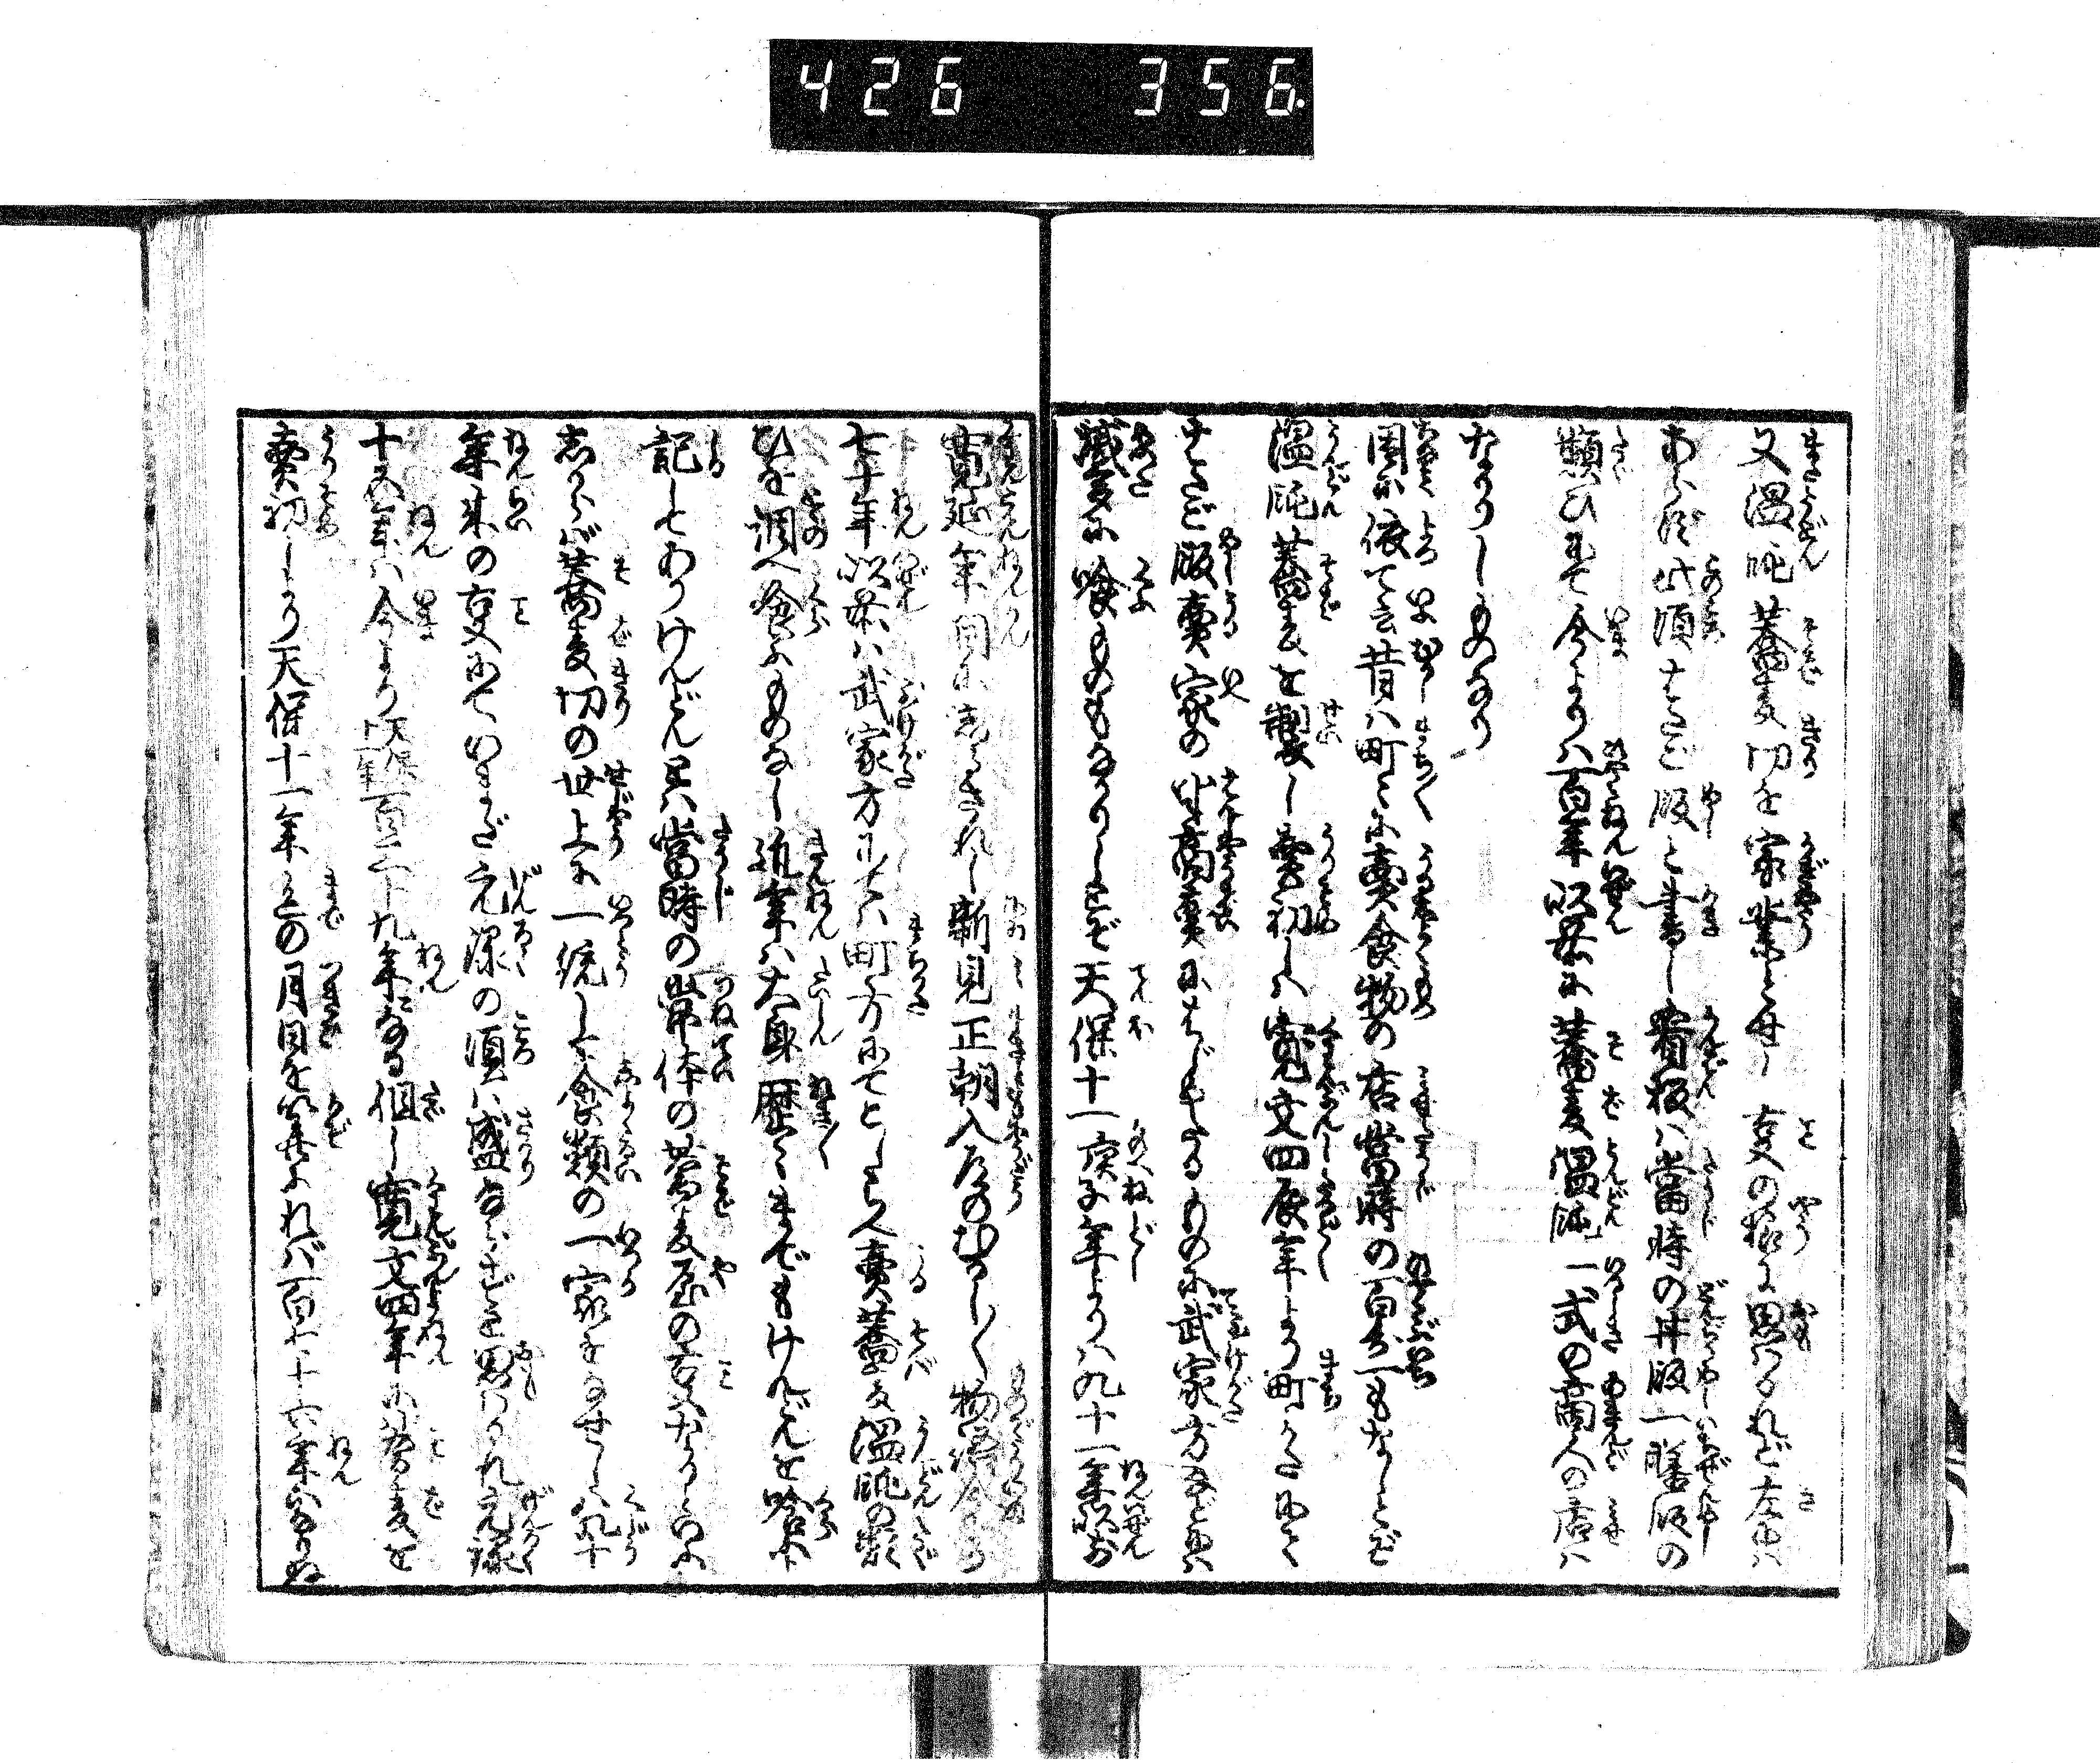 426 356
又温飩蕎麦切を家業とせし事の様に思はるれど左にハ
あらず此頃はたご飯と書し看板ハ當時の丼飯一膳飯の
類ひにて今よりハ百年以前に蕎麦温飩一式の商人の店ハ
なかりしものなり
因に依て云昔ハ町々に賣食物の店當時の百分一もなしとぞ
温飩蕎麦を製し賣初しハ寛文四辰年より町かたにて
はたご飯賣家の
商賣にはじめたるものに武家方などにハ
滅多に喰ものもなかりしとぞ天保十一庚子年よりハ九十一年以前
寛延年間にしるされし新見正朝入道のむかし〳〵物語
七十年以来ハ武家方にてハ町方にてとゝのへ賣蕎麦温飩の類
ひを調へ食ふものなし近年ハ大身歴々までもけんどんを喰ふ
記しとありけんどんハ當時の常体の蕎麦屋の事なりといふ
しからバ蕎麦切の世上に一統して食類の一家をなせしハ九十
年来の事にていまだ元禄の頃ハ盛ならずと思ハれ元禄
十五年ハ今より天保十一年百三十九年になる但し寛文四年に蕎麦を
賣初しより天保十一年までの月日を算ふれバ百七十六年になりぬ